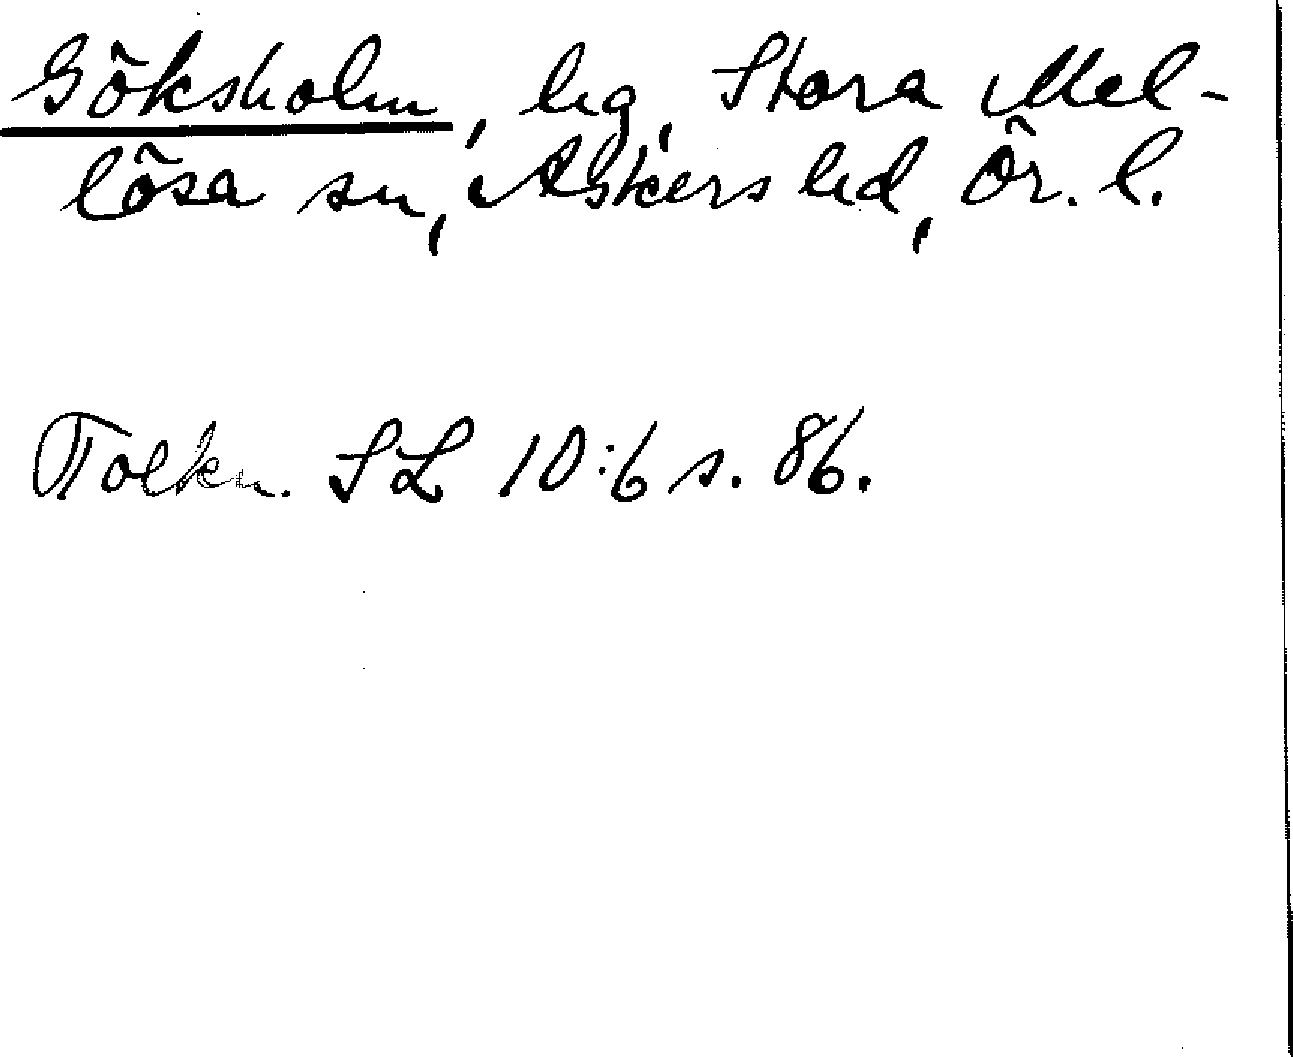 Göksholm, hg, Stora Mel-
lösa sn, Askers hd, Ör. l.
Tolkn. SL 10:6 s. 86.